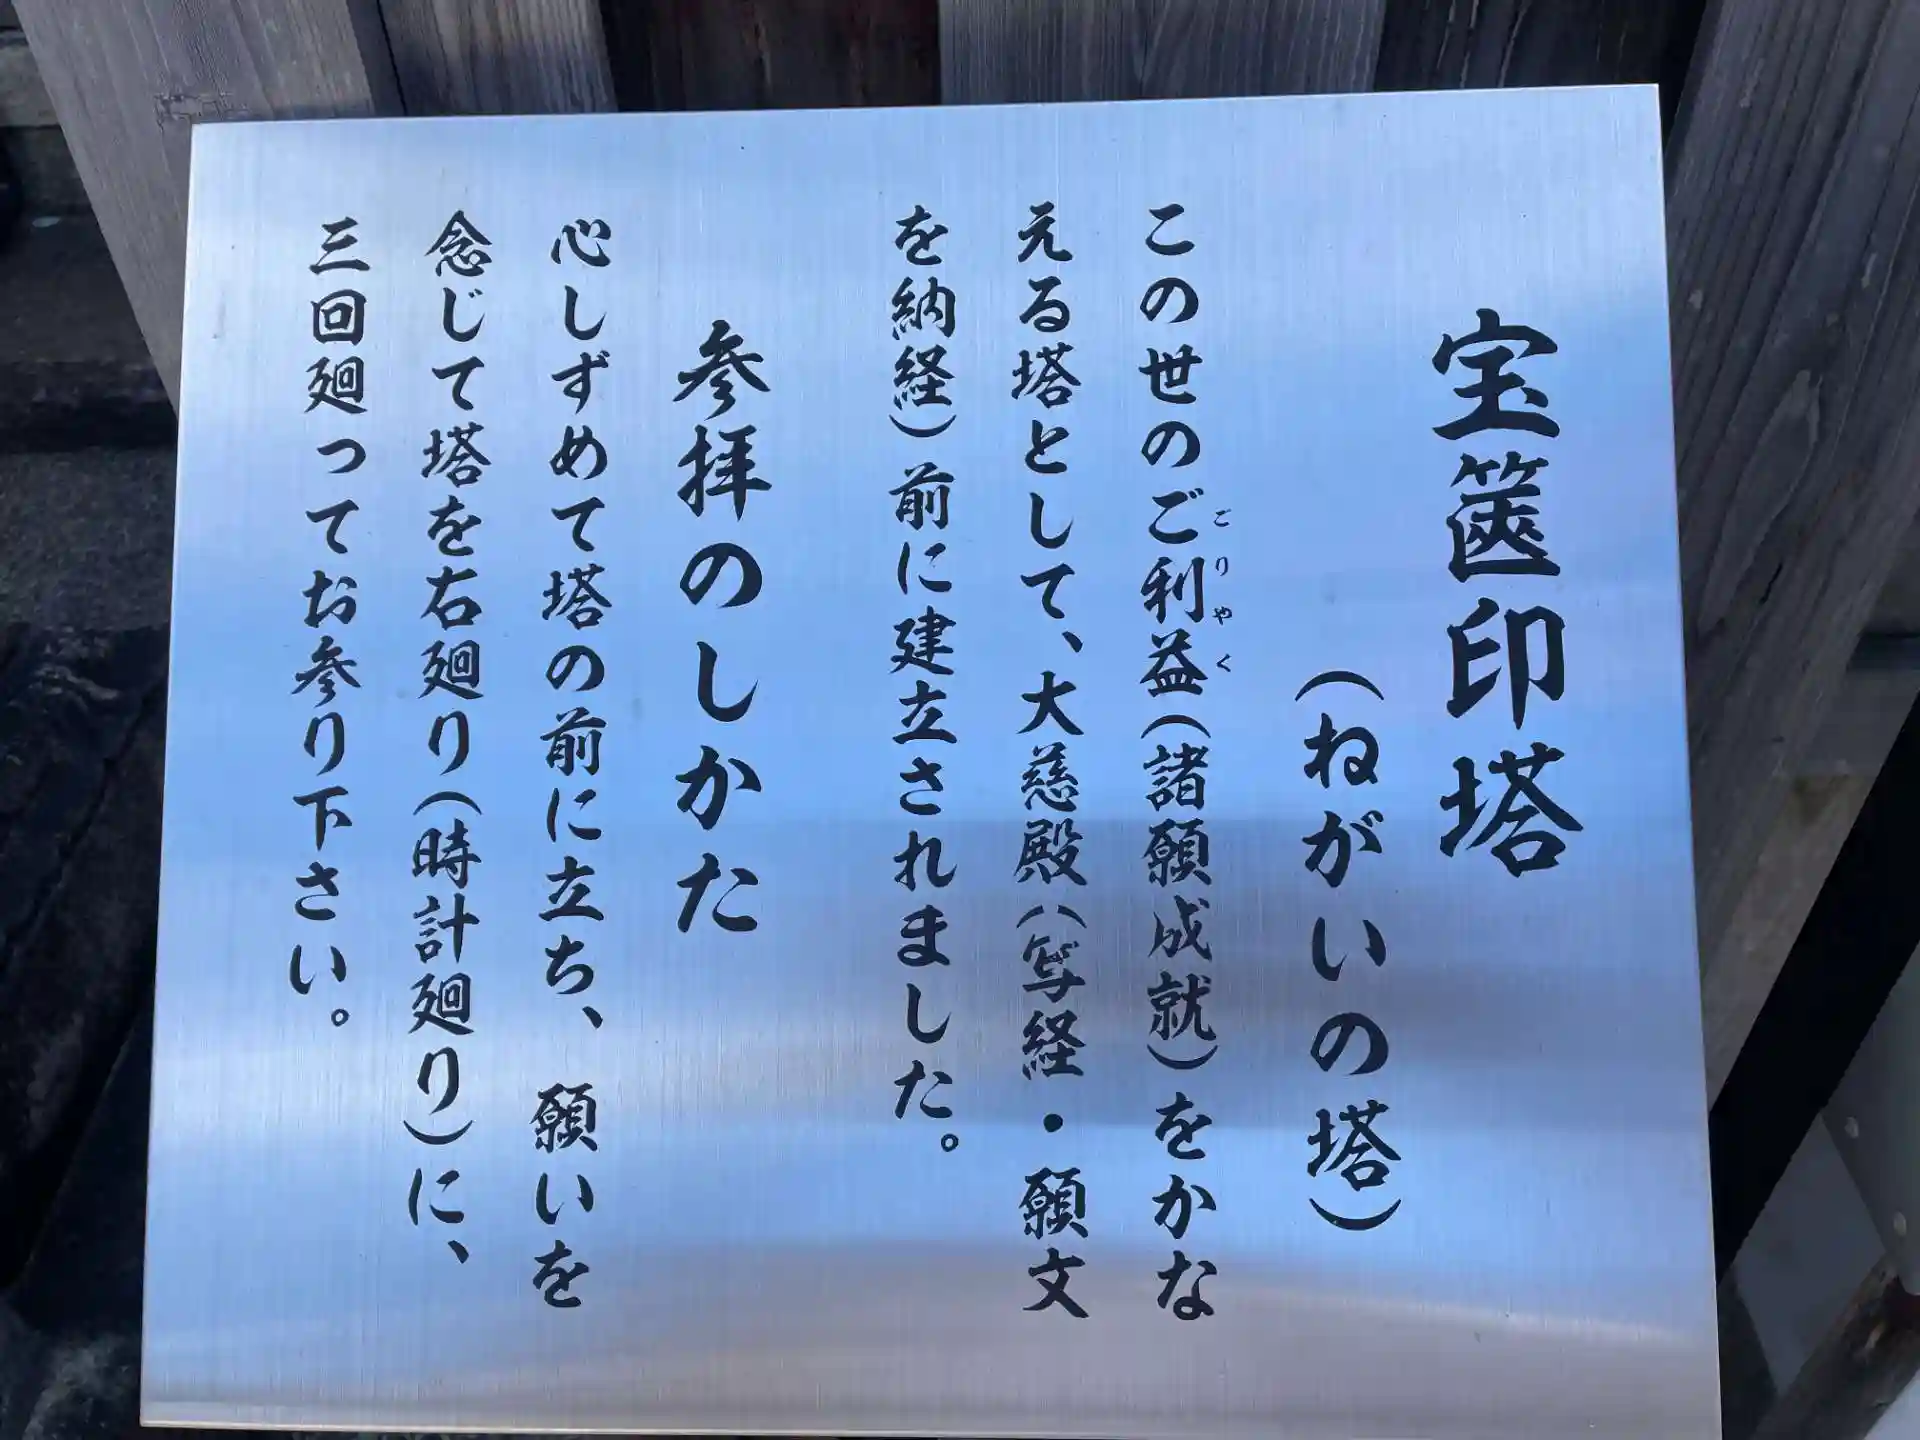 宝篋印塔
(ねがいの塔)
この世のご利益(諸願成就)をかな
ごりやく
える塔として、大慈殿(写経・願文
を納経)前に建立されました。
参拝のしかた
心しずめて塔の前に立ち、願いを
念じて塔を右廻り(時計廻り)に、
三回廻ってお参り下さい。